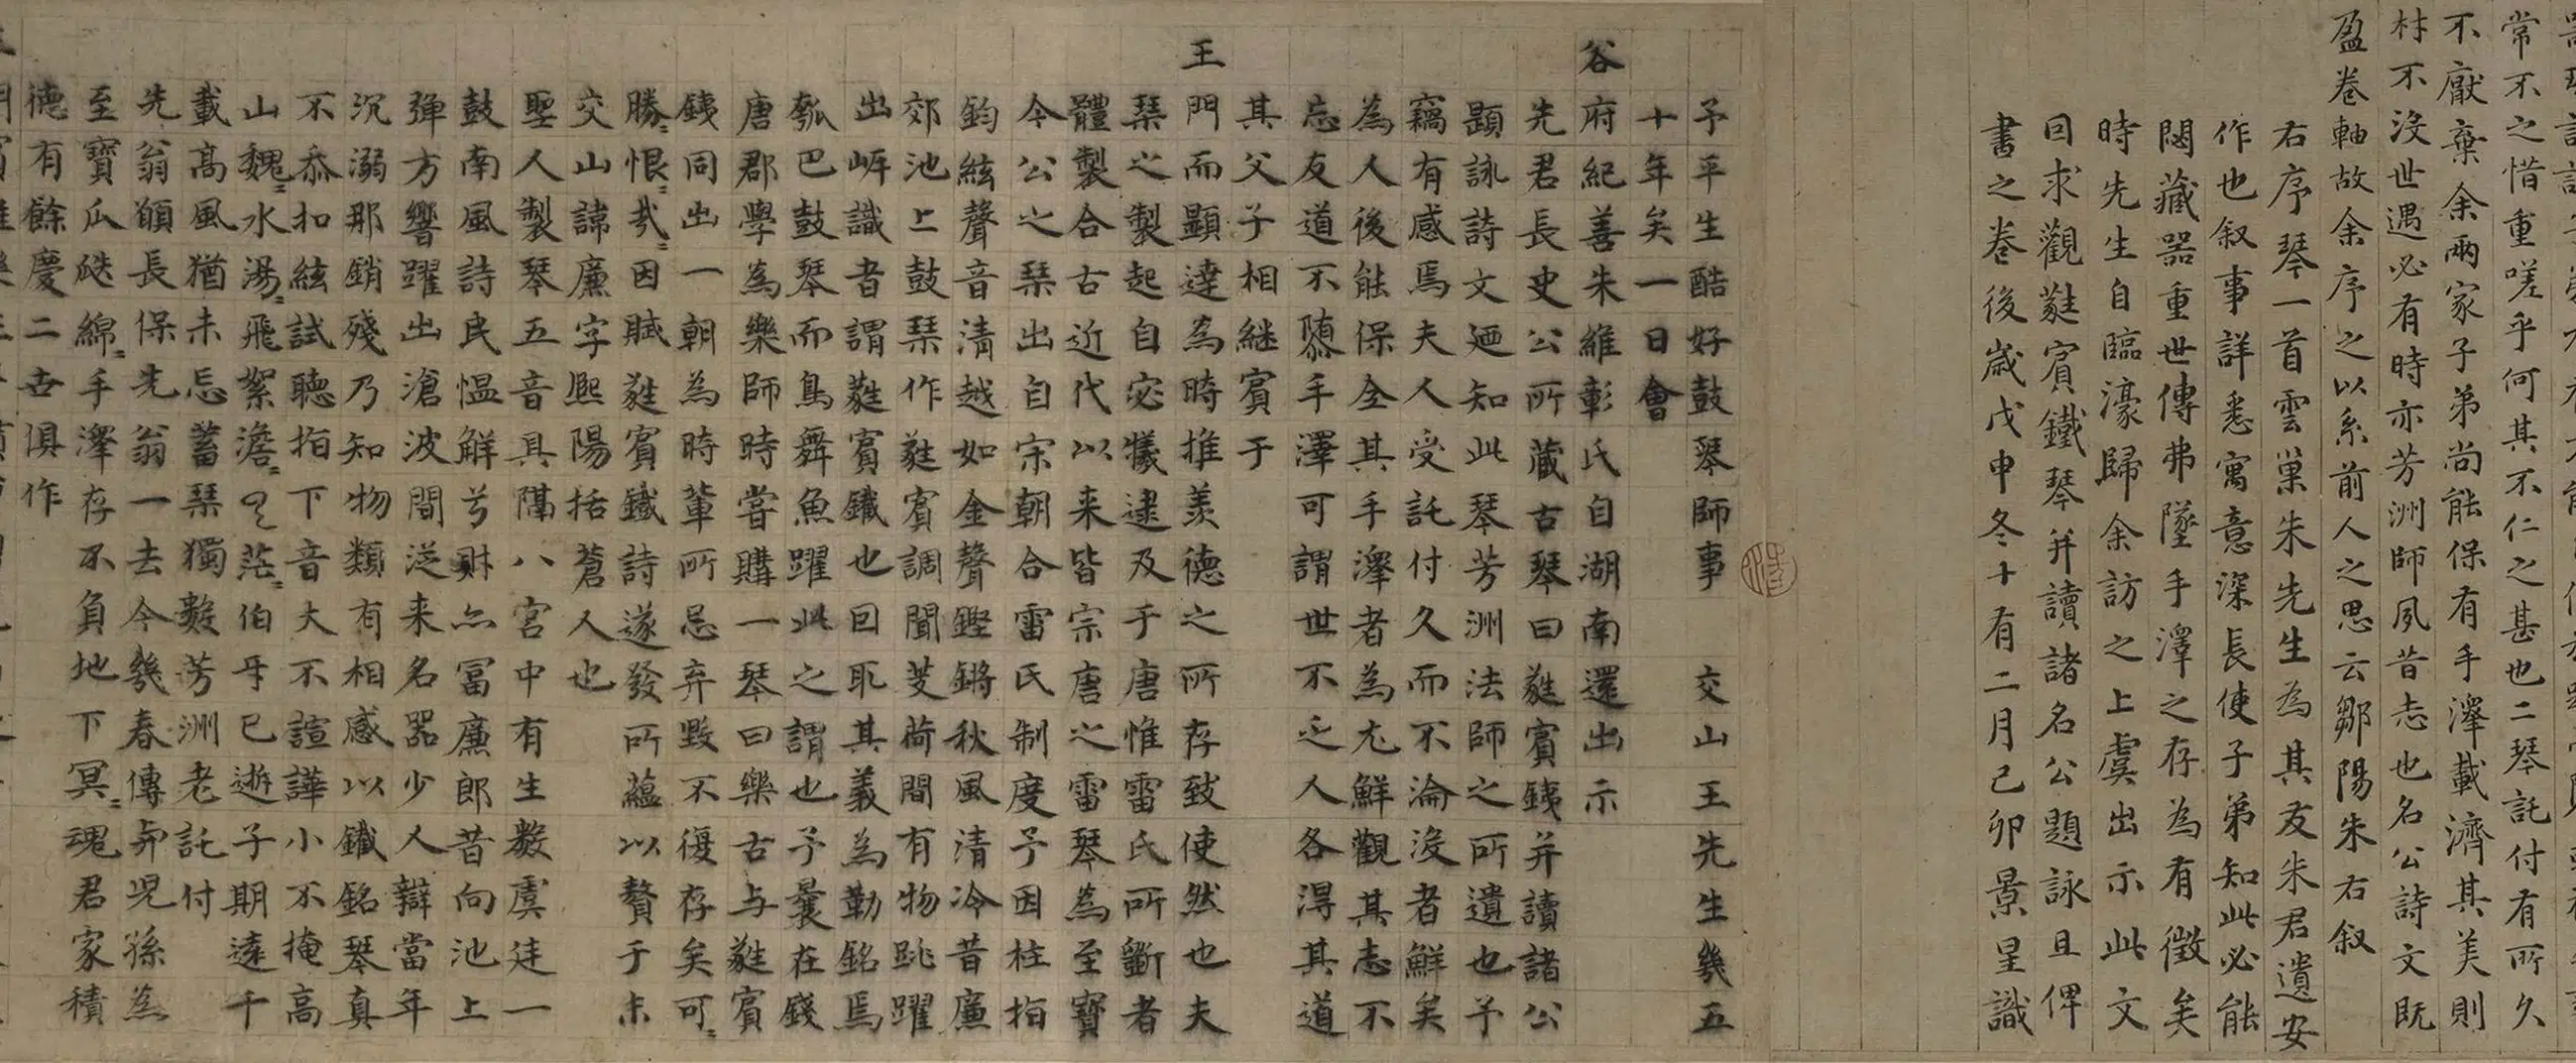 常不之惜重嗟乎何其不仁之甚也二琴託付有所久
不厭棄余兩家子弟尚能保有手澤載濟其美則
材不沒世遇必有時亦芳洲師夙昔志也名公詩文既
盈卷軸故余序之以系前人之思云鄒陽朱右叙
右序琴一首雲巢朱先生為其友朱君遺安
作也叙事詳悉寓意深長使子弟知此必能
閟藏器重世傳弗墜手澤之存為有徵矣
時先生自臨濠歸余訪之上虞出示此文
回求觀蕤賓鐵琴并讀諸名公題詠且俾
書之卷後歲戊申冬十有二月己卯景星識
予平生酷好鼓琴師事 交山王先生幾五
十年矣一日會
谷府紀善朱維彰氏自湖南還出示
先君長史公所藏古琴曰蕤賓銕并讀諸公
題詠詩文廼知此琴芳洲法師之所遺也予
竊有感焉夫人受託付久而不淪沒者鮮矣
為人後能保全其手澤者為尤鮮觀其志不
忘友道不隳手澤可謂世不乏人各得其道
其父子相繼賓于
王
門而顯達為時推羨德之所存致使然也夫
琹之製起自宓犧逮及乎唐惟雷氏所斷者
體製合古近代以来皆宗唐之雷琴為至寶
今公之琹出自宋朝合雷氏制度予因柱指
鈞絃聲音清越如金聲鏗鏘秋風清冷昔廉
郊池上鼓琹作蕤賓調聞芰荷間有物跳躍
出岸識者謂蕤賓鐵也回取其義為勒銘焉
瓠巴鼓琴而鳥舞魚躍此之謂也予曩在錢
唐郡學為樂師時嘗購一琴曰樂古与蕤賓
銕同出一朝為時輩所忌弃毀不復存矣可〻
勝〻恨〻哉〻因賦蕤賓鐵詩遂發所蘊以贅于末
交山諱廉字熙陽括蒼人也
聖人製琴五音具隔八宮中有生數虞廷一
鼓南風詩民慍解兮財亦富廉郎昔向池上
彈方響躍出滄波間淀来名器少人辯當年
沉溺那銷殘乃知物類有相感以鐵銘琴真
不忝扣絃試聽指下音大不諠譁小不掩高
山魏〻水湯〻飛絮澹〻茫〻伯牙已逝子期遠千
載高風猶未忘蓄琹獨數芳洲老託付
先翁願長保先翁一去今幾春傳與児孫為
至寶瓜瓞綿〻手澤存不負地下冥〻魂君家積
德有餘慶二古俱作